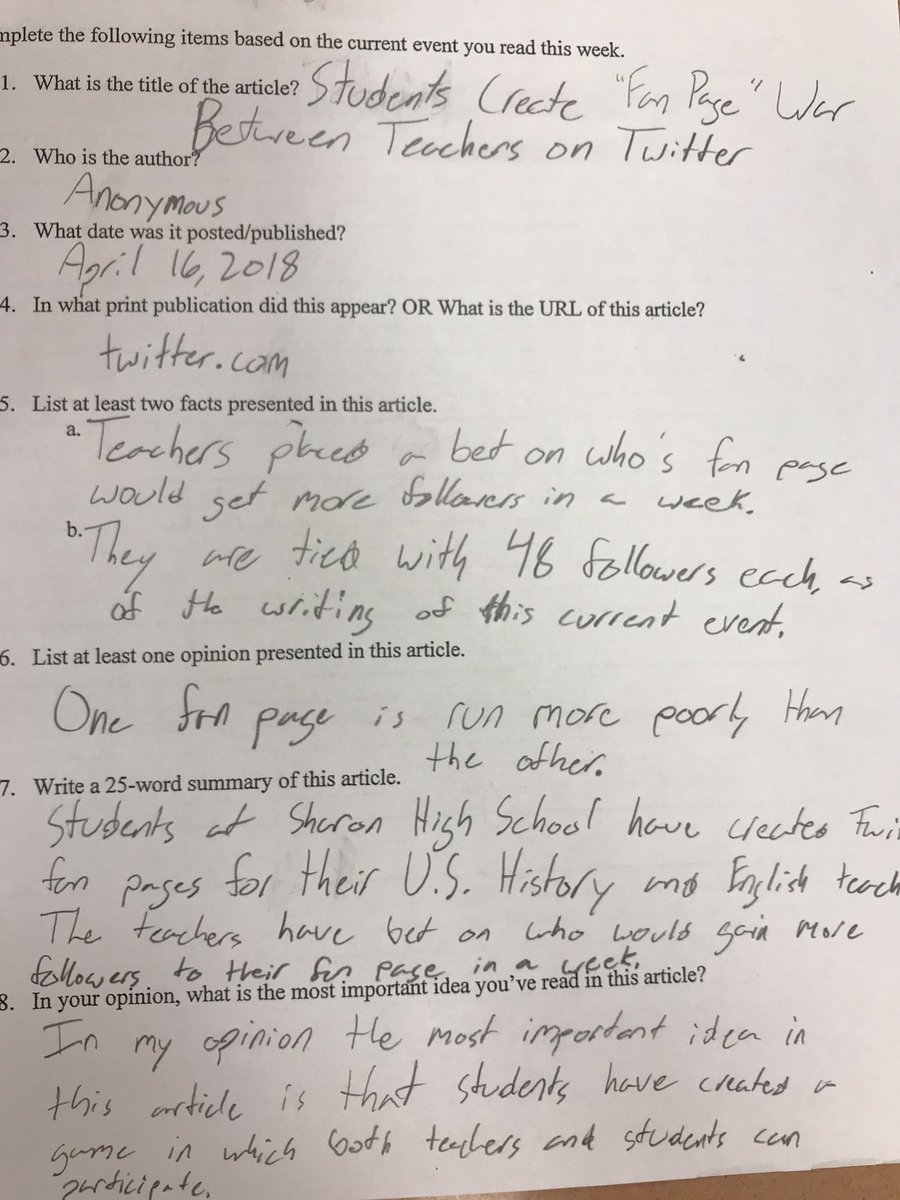 mplete the following items based on the current event you read this week.
1. What is the title of the article? Students Create "Fan Page" War
Between Teachers on Twitter
2. Who is the author?
Anonymous
3. What date was it posted/published?
April 16, 2018
4. In what print publication did this appear? OR What is the URL of this article?
twitter.com
5. List at least two facts presented in this article.
a. Teachers placed a bet on who's fan page
would get more followers in a week.
b. They are tied with 48 followers each, as
of the writing of this current event.
6. List at least one opinion presented in this article.
One fan page is run more poorly than
the other.
7. Write a 25-word summary of this article.
Students at Sharon High School have created Twi
fan pages for their U.S. History and English teach
The teachers have bet on who would gain more
followers to their fan page in a week.
8. In your opinion, what is the most important idea you've read in this article?
In my opinion the most important idea in
this article is that students have created a
game in which both teachers and students can
participate.